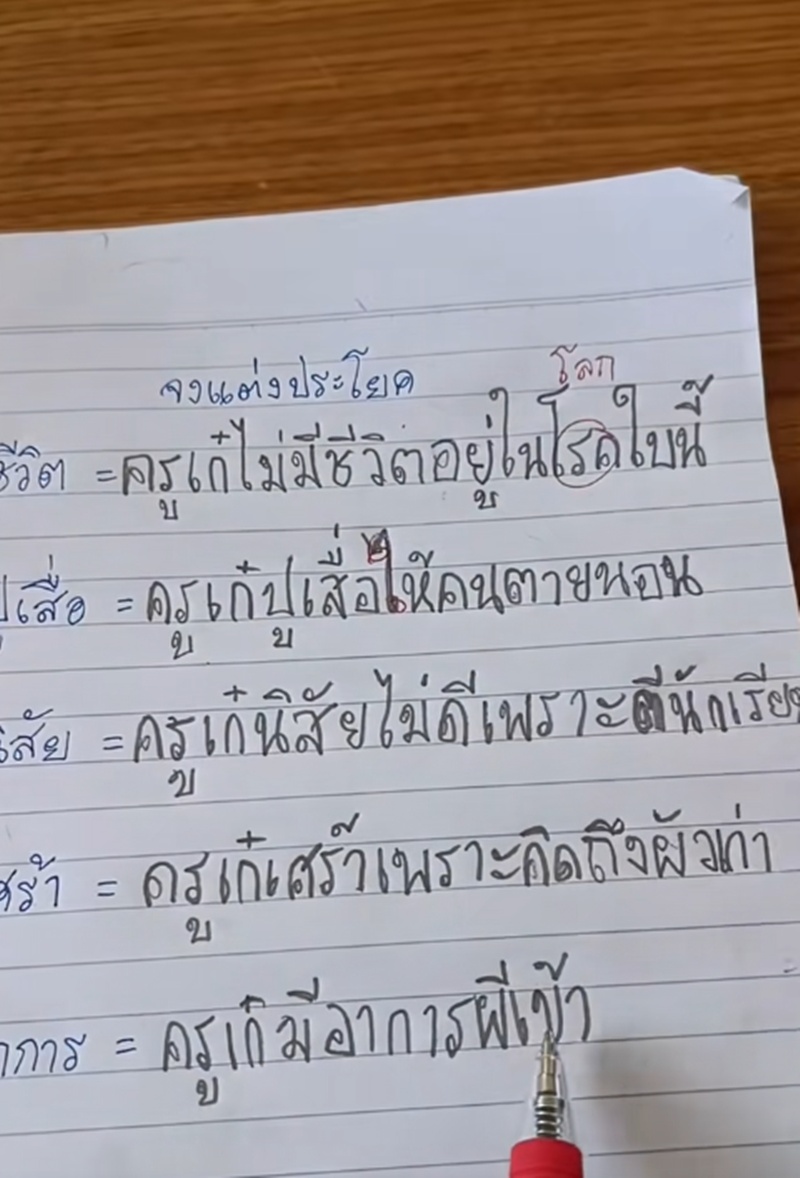 จงแต่งประโยค
โลก
ชีวิต = ครูเก๋ไม่มีชีวิตอยู่ในโรคใบนี้
ปูเสื่อ = ครูเก๋ปูเสื่อให้คนตายนอน
นิสัย = ครูเก๋นิสัยไม่ดีเพราะตีนักเรียน
เศร้า = ครูเก๋เศร้าเพราะคิดถึงผัวเก่า
อาการ = ครูเก๋มีอาการผีเข้า